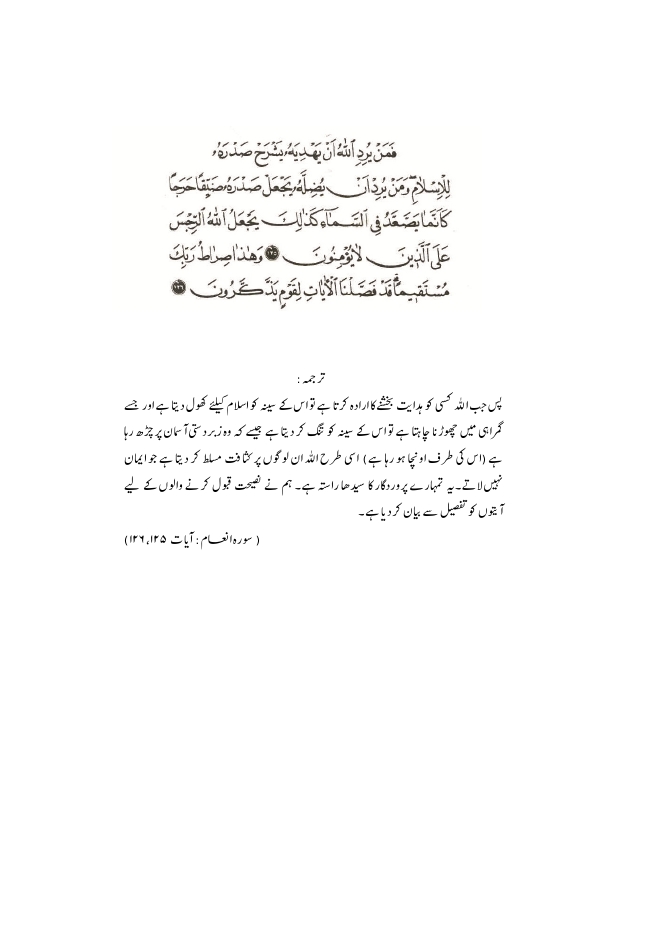 فَمَنْ يُرِدِ ٱللّٰهُ اَنْ يَهْدِيَهُۥ يَشْرَحْ صَدْرَهُۥ
لِلْاِسْلَامِۖ وَمَنْ يُرِدْ اَنْ يُضِلَّهُۥ يَجْعَلْ صَدْرَهُۥ ضَيِّقًا حَرَجًا
كَاَنَّمَا يَصَّعَّدُ فِى السَّمَآءِۚ كَذٰلِكَ يَجْعَلُ ٱللّٰهُ ٱلرِّجْسَ
عَلَى ٱلَّذِينَ لَا يُؤْمِنُونَ ۝۱۲۵ وَهٰذَا صِرَاطُ رَبِّكَ
مُسْتَقِيمًاۗ قَدْ فَصَّلْنَا ٱلْاٰيَاتِ لِقَوْمٍ يَذَّكَّرُونَ ۝۱۲۶
ترجمہ:
پس جب اللہ کسی کو ہدایت بخشنے کا ارادہ کرتا ہے تو اس کے سینہ کو اسلام کیلئے کھول دیتا ہے اور جسے
گمراہی میں چھوڑنا چاہتا ہے تو اس کے سینہ کو تنگ کر دیتا ہے جیسے کہ وہ زبردستی آسمان پر چڑھ رہا
ہے (اس کی طرف اونچا ہو رہا ہے) اسی طرح اللہ ان لوگوں پر کثافت مسلط کر دیتا ہے جو ایمان
نہیں لاتے۔ یہ تمہارے پروردگار کا سیدھا راستہ ہے۔ ہم نے نصیحت قبول کرنے والوں کے لیے
آیتوں کو تفصیل سے بیان کر دیا ہے۔
( سورہ انعام: آیات ۱۲۵، ۱۲۶)